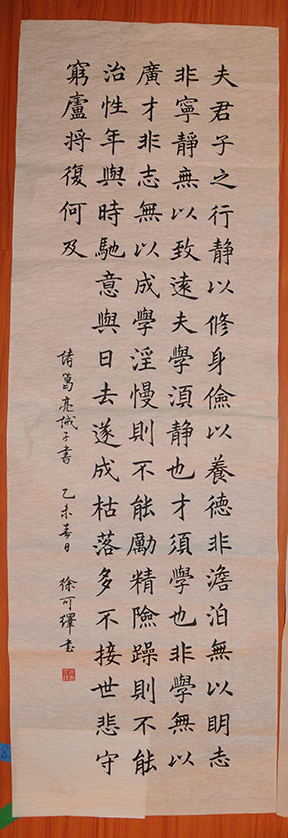 夫君子之行静以修身儉以養德非澹泊無以明志
非寧靜無以致遠夫學須静也才須學也非學無以
廣才非志無以成學淫慢則不能勵精險躁則不能
治性年與時馳意與日去遂成枯落多不接世悲守
窮廬将復何及
諸葛亮诫子書 乙未春日 徐可鐸书